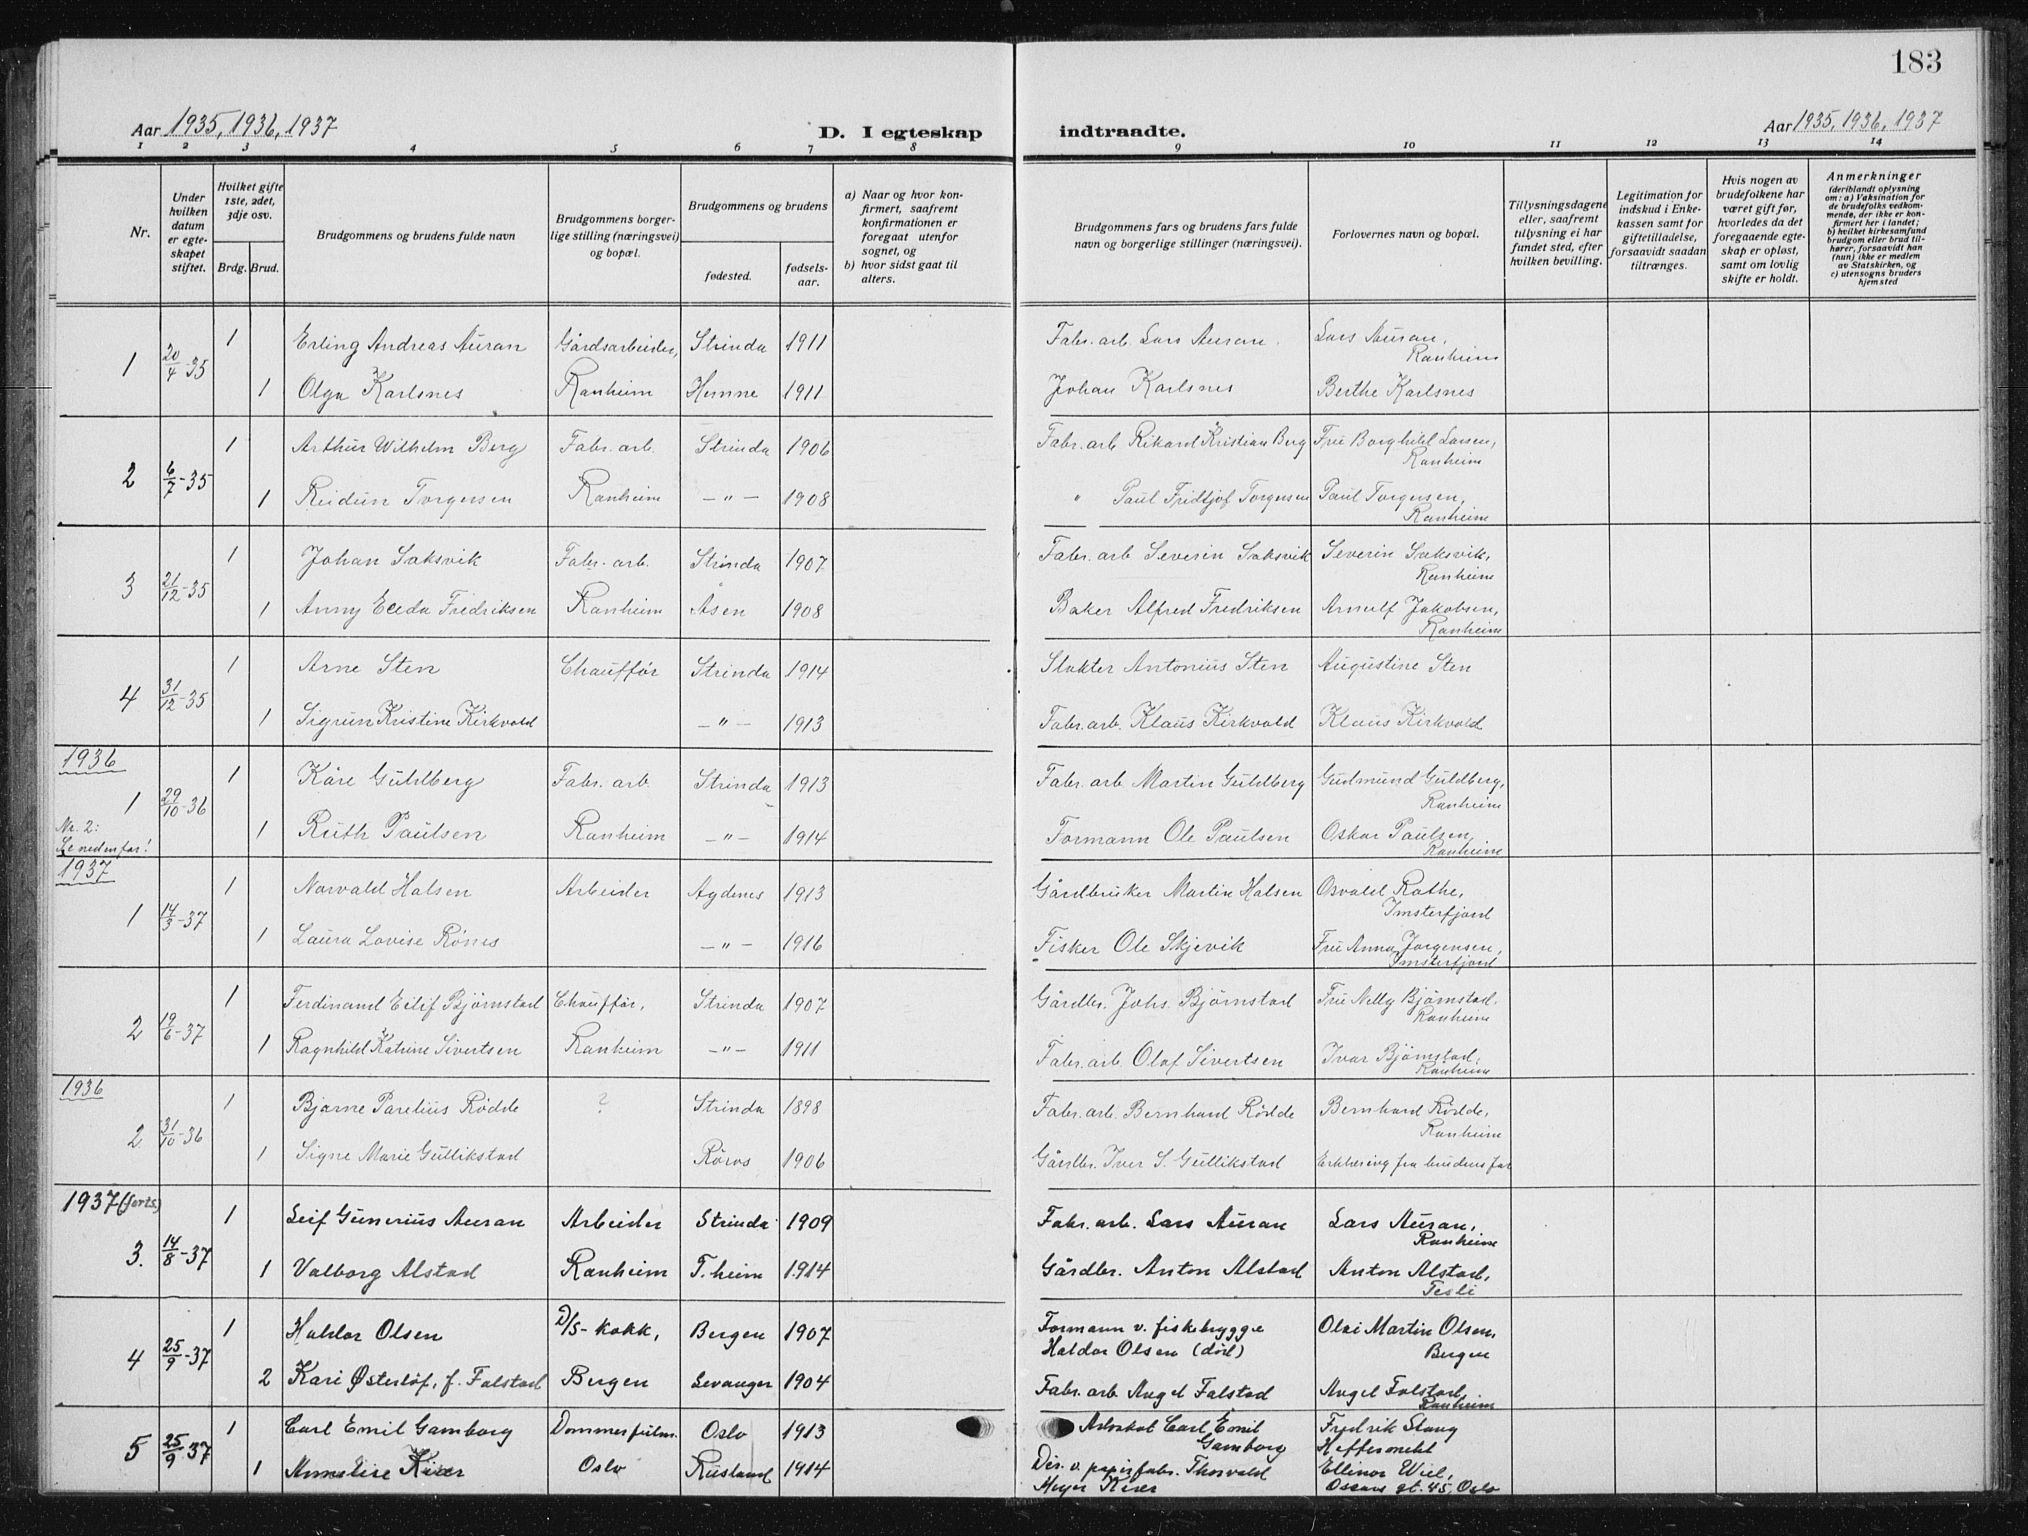 183
Aar 1935, 1936, 1937
D. I egteskap indtraadte.
Aar 1935, 1936, 1937
1 2 3 4 5 6 7 8 9 10 11 12 13 14
Nr.
Under hvilken datum er egteskapet stiftet.
Hvilket gifte 1ste, 2det, 3dje osv.
Brdg. Brud.
Brudgommens og brudens fulde navn
Brudgommens borgerlige stilling (næringsvei) og bopæl.
Brudgommens og brudens
fødested.
fødselsaar.
a) Naar og hvor konfirmert, saafremt konfirmationen er foregaat utenfor sognet, og
b) hvor sidst gaat til alters.
Brudgommens fars og brudens fars fulde navn og borgerlige stillinger (næringsvei).
Forlovernes navn og bopæl.
Tillysningsdagene eller, saafremt tillysning ei har fundet sted, efter hvilken bevilling.
Legitimation for indskud i Enkekassen samt for giftetilladelse, forsaavidt saadan tiltrænges.
Hvis nogen av brudefolkene har været gift før, hvorledes da det foregaaende egteskap er opløst, samt om lovlig skifte er holdt.
Anmerkninger
(deriblandt oplysning om: a) Vaksination for de brudefolks vedkommende, der ikke er konfirmert her i landet; b) hvilket kirkesamfund brudgom eller brud tilhører, forsaavidt han (hun) ikke er medlem av Statskirken, og c) utensogns bruders hjemsted
1 20/4-35 1 Erling Andreas Auran Gårdsarbeider, Strinda 1911 Fabr. arb. Lars Auran. Lars Auran, Ranheim
1 Olga Karlsnes Ranheim Hemne 1911 Johan Karlsnes Berthe Karlsnes
2 6/7-35 1 Arthur Wilhelm Berg Fabr. arb. Strinda 1906 Fabr. arb. Rikard Kristian Berg Fru Borghild Larsen, Ranheim
1 Reidun Torgersen Ranheim -"- 1908 " Paul Fridtjof Torgersen Paul Torgersen, Ranheim
3 21/12-35 1 Johan Saksvik Fabr. arb. Strinda 1907 Fabr. arb Severin Saksvik Severin Saksvik, Ranheim
1 Anny Elida Fredriksen Ranheim Åsen 1908 Baker Alfred Fredriksen Arnulf Jakobsen, Ranheim
4 31/12-35 1 Arne Sten Chauffør Strinda 1914 Slakter Antonius Sten Augustine Sten
1 Sigrun Kristine Kirkvold -"- 1913 Fabr. arb. Klaus Kirkvold Klaus Kirkvold
1936
1 29/10-36 1 Kåre Guldberg Fabr. arb. Strinda 1913 Fabr. arb Martin Guldberg Gudmund Guldberg, Ranheim
Nr. 2: Se nedenfor!
1 Ruth Paulsen Ranheim -"- 1914 Formann Ole Paulsen Oskar Paulsen, Ranheim
1937
1 14/3-37 1 Norvald Halsen Arbeider Agdenes 1913 Gårdbruker Martin Halsen Osvald Rathe, Imsterfjord
1 Laura Lovise Rønes -"- 1916 Fisker Ole Skjevik Fru Anna Jørgensen, Imsterfjord
2 19/6-37 1 Ferdinand Eilif Bjørnstad Chauffør, Strinda 1907 Gårdbr. Johs. Bjørnstad Fru Nelly Bjørnstad. Ranheim
1 Ragnhild Katrine Sivertsen Ranheim -"- 1911 Fabr. arb. Olaf Sivertsen Ivar Bjørnstad, Ranheim
1936
2 31/10-36 1 Bjarne Parelius Rødde ? Strinda 1898 Fabr. arb. Bernhard Rødde Bernhard Rødde, Ranheim
1 Signe Marie Gullikstad Røros 1906 Gårdbr. Iver S. Gullikstad Erklæring fra brudens far
1937 (forts.)
3. 14/8-37 1 Leif Gunerius Auran Arbeider Strinda 1909 Fabr. arb. Lars Auran Lars Auran, Ranheim
1 Valborg Alstad Ranheim T.heim 1914 Gårdbr. Anton Alstad Anton Alstad, Tesli
4 25/9-37 1 Haldor Olsen D/S- kokk, Bergen 1907 Formann v. fiskebrygge Haldor Olsen (død) Olai Martin Olsen, Bergen
2 Kari Østerlöf, f. Falstad Bergen Levanger 1904 Fabr. arb Angel Falstad Angel Falstad, Ranheim
5 25/9-37 1 Carl Emil Gamborg Dommerfullm. Oslo 1913 Advokat Carl Emil Gamborg Fredrik Stang
1 Annelise Kiær Oslo Rusland 1914 Dir. v. papirfabr. Thorvald Meyer Kiær Ellinor Wiel, Oscars gt. 45, Oslo